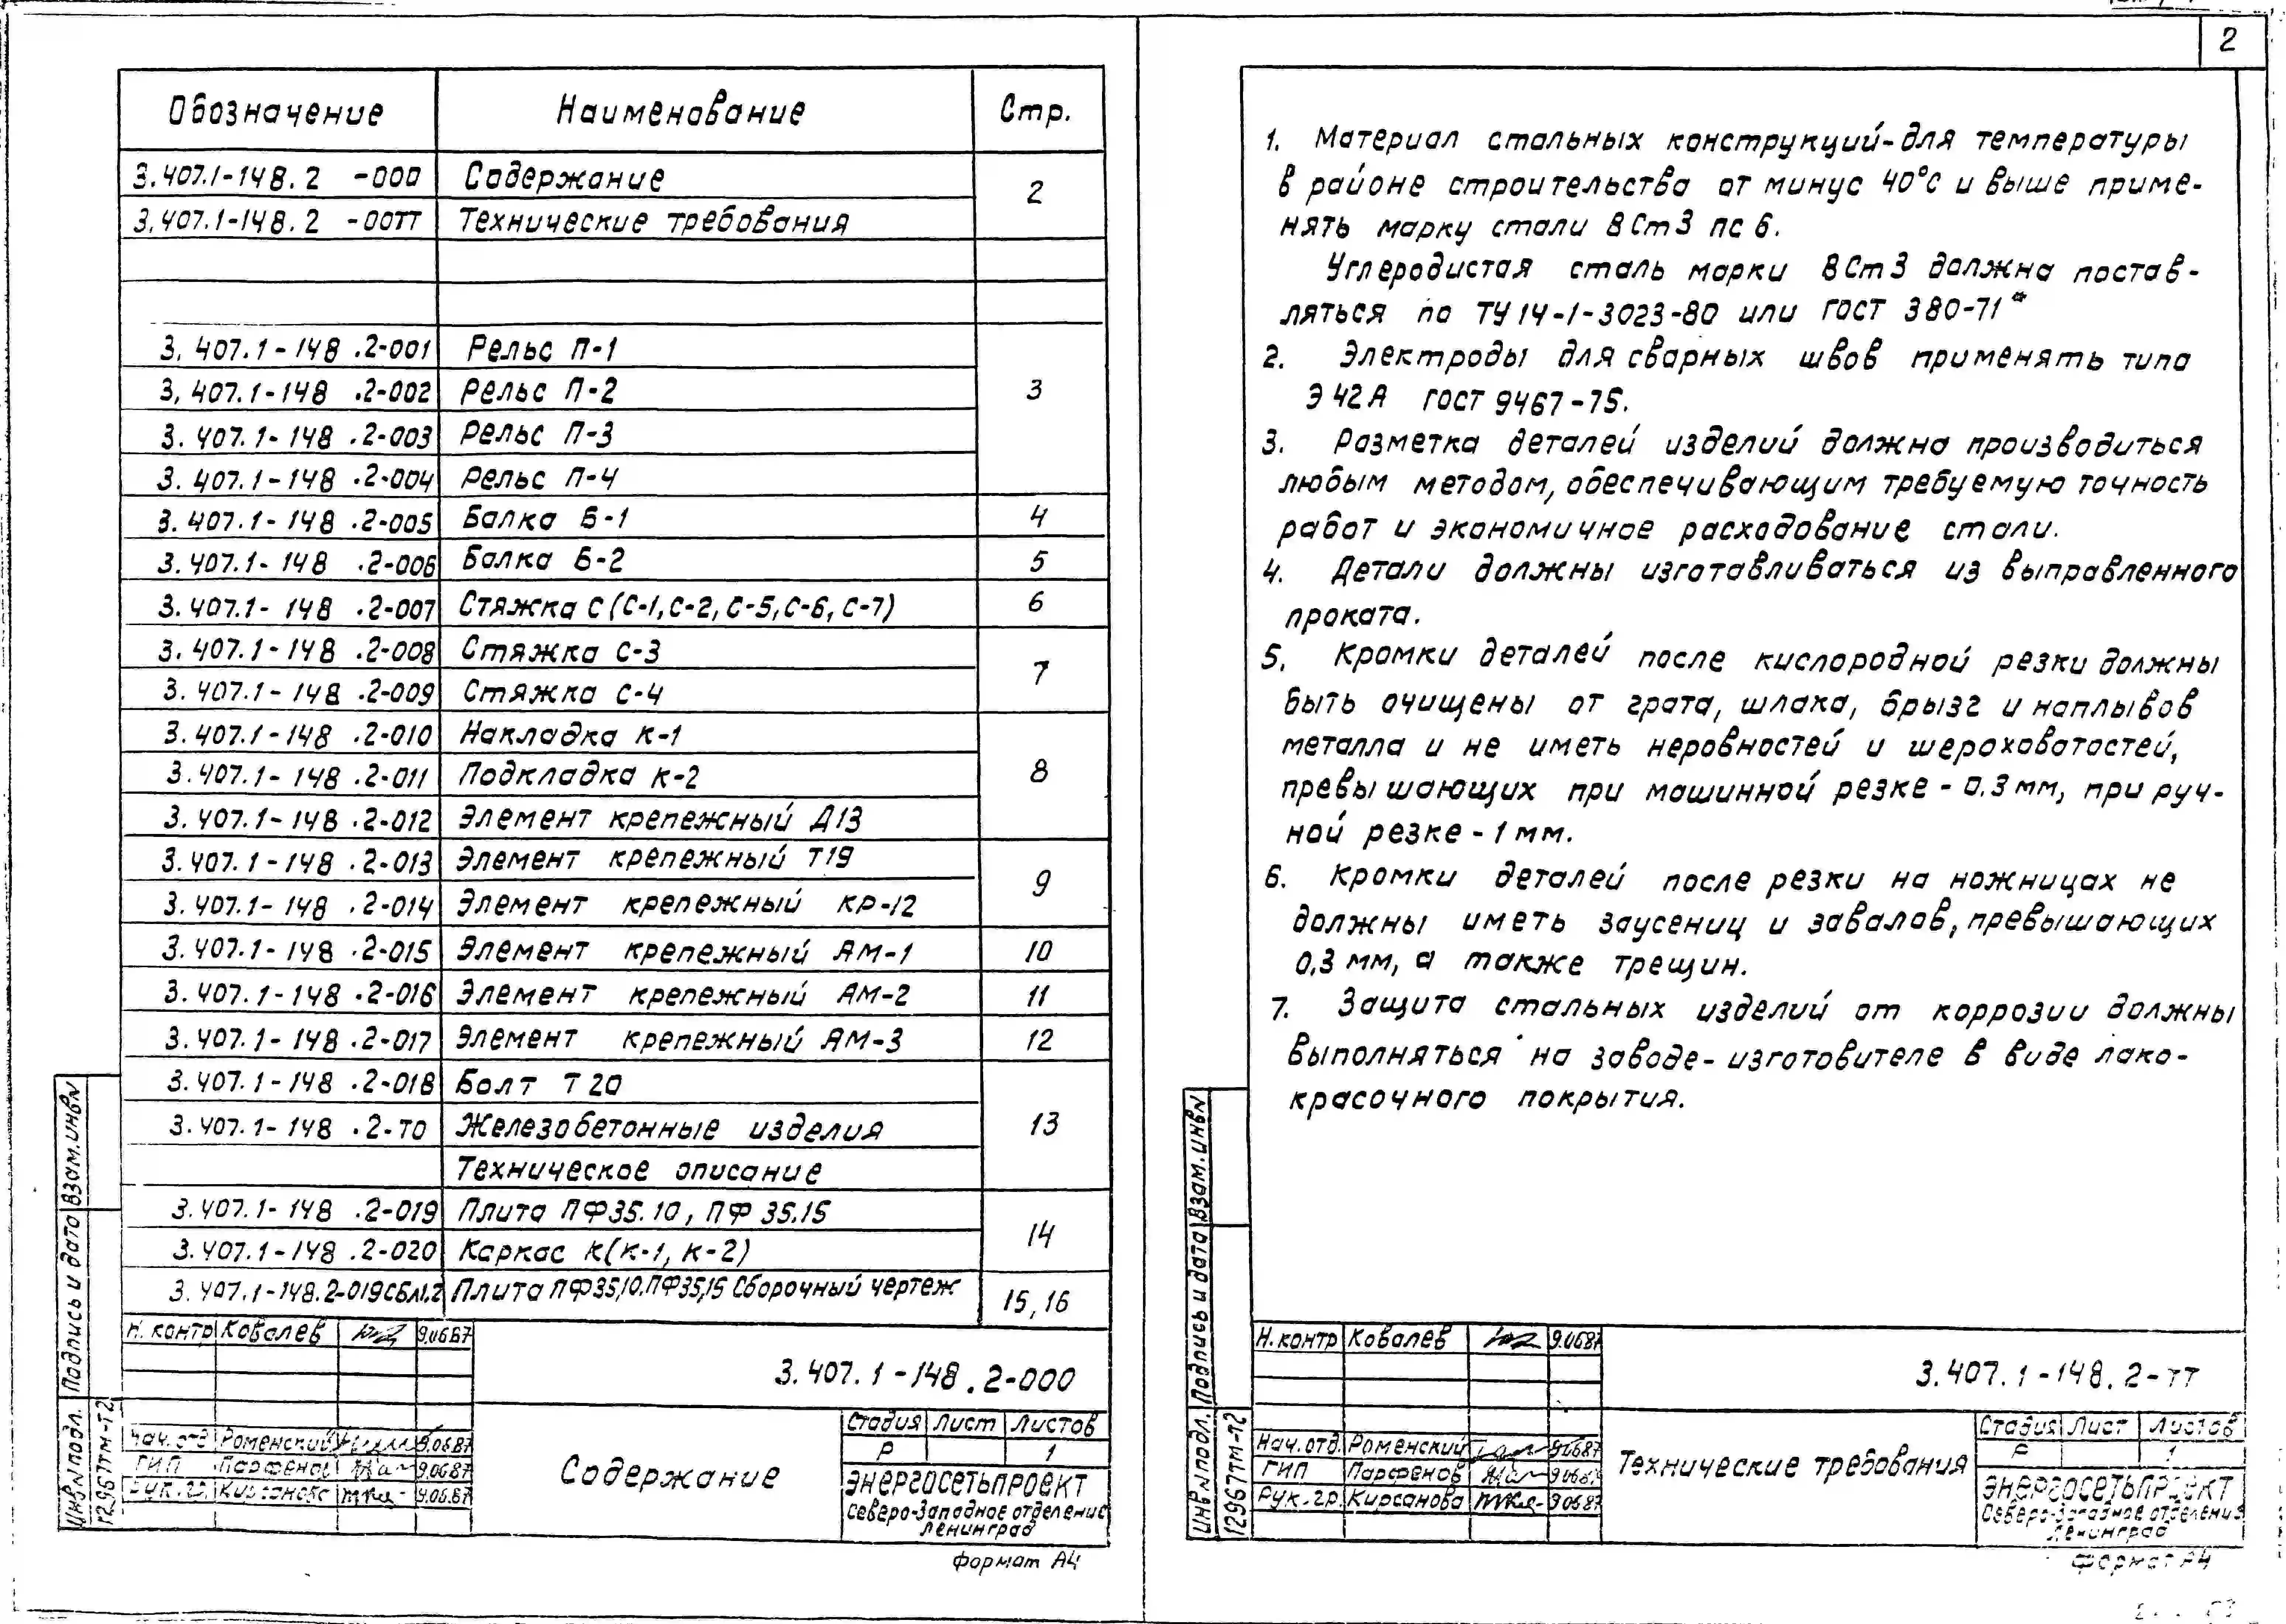 Обозначение Наименование Стр.
3.407.1-148.2 -000 Содержание 2
3.407.1-148.2 -00ТТ Технические требования
3.407.1-148.2-001 Рельс П-1 3
3.407.1-148.2-002 Рельс П-2
3.407.1-148.2-003 Рельс П-3
3.407.1-148.2-004 Рельс П-4
3.407.1-148.2-005 Балка Б-1 4
3.407.1-148.2-006 Балка Б-2 5
3.407.1-148.2-007 Стяжка С (С-1, С-2, С-5, С-6, С-7) 6
3.407.1-148.2-008 Стяжка С-3 7
3.407.1-148.2-009 Стяжка С-4
3.407.1-148.2-010 Накладка К-1 8
3.407.1-148.2-011 Подкладка К-2
3.407.1-148.2-012 Элемент крепежный Д13
3.407.1-148.2-013 Элемент крепежный Т19 9
3.407.1-148.2-014 Элемент крепежный КР-12
3.407.1-148.2-015 Элемент крепежный АМ-1 10
3.407.1-148.2-016 Элемент крепежный АМ-2 11
3.407.1-148.2-017 Элемент крепежный АМ-3 12
3.407.1-148.2-018 Болт Т20 13
3.407.1-148.2-ТО Железобетонные изделия
Техническое описание
3.407.1-148.2-019 Плита ПФ35.10, ПФ 35.15 14
3.407.1-148.2-020 Каркас К(К-1, К-2)
3.407.1-148.2-019СБл1.2 Плита ПФ35,10.ПФ35,15 Сборочный чертеж 15,16
Н. контр Ковалев 9.0687
3.407.1-148.2-000
Нач. отд Роменский 9.0687
ГИП Парфенов 9.0687
Рук. гр. Кирсанова 9.06.87
Содержание
Стадия Лист Листов
Р 1
ЭНЕРГОСЕТЬПРОЕКТ
Северо-Западное отделение
Ленинград
Инв№подл. Подпись и дата Взам.инв№
12967тм-т2
формат А4
2
1. Материал стальных конструкций-для температуры
в районе строительства от минус 40°С и выше приме-
нять марку стали ВСт3 пс 6.
Углеродистая сталь марки ВСт3 должна постав-
ляться по ТУ14-1-3023-80 или ГОСТ 380-71*
2. Электроды для сварных швов применять типа
Э42А ГОСТ 9467-75.
3. Разметка деталей изделий должна производиться
любым методом, обеспечивающим требуемую точность
работ и экономичное расходование стали.
4. Детали должны изготавливаться из выправленного
проката.
5. Кромки деталей после кислородной резки должны
быть очищены от грата, шлака, брызг и наплывов
металла и не иметь неровностей и шероховатостей,
превышающих при машинной резке - 0.3 мм, при руч-
ной резке - 1 мм.
6. Кромки деталей после резки на ножницах не
должны иметь заусениц и завалов, превышающих
0,3 мм, а также трещин.
7. Защита стальных изделий от коррозии должны
выполняться на заводе-изготовителе в виде лако-
красочного покрытия.
Н.контр Ковалев 9.0687
3.407.1-148.2-ТТ
Нач.отд. Роменский 9.0687
ГИП Парфенов 9.0687
Рук.гр. Кирсанова 9.0687
Технические требования
Стадия Лист Листов
Р 1
ЭНЕРГОСЕТЬПРОЕКТ
Северо-Западное отделение
Ленинград
Инв№подл. Подпись и дата Взам.инв№
12967тм-т2
формат А4